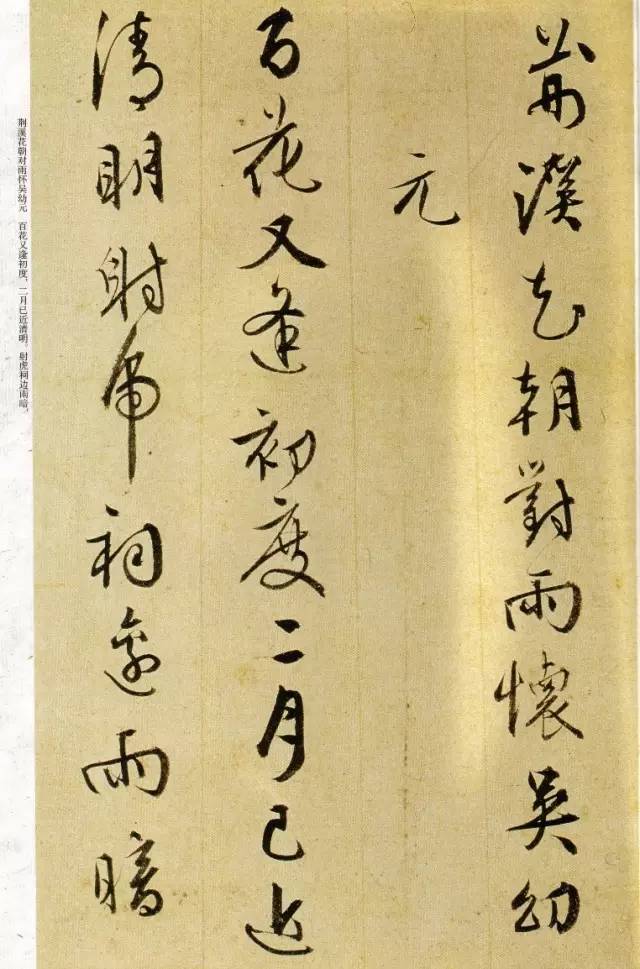 荊溪花朝對雨懷吳幼
元
百花又逢初度二月已近
清明射虎祠邊雨暗
荆溪花朝对雨怀吴幼元　百花又逢初度，二月已近清明。射虎祠边雨暗，